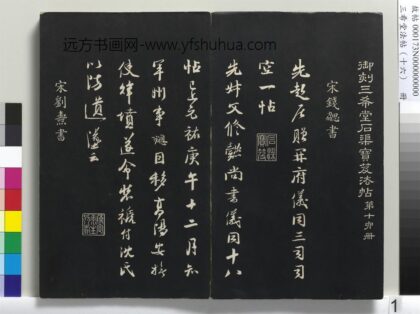 远方书画网-www.yfshuhua.com
故帖 000173N00000000
三希堂法帖（十六） 冊
御刻三希堂石渠寶笈法帖第十六冊
宋錢勰書
先起居贈開府儀同三司司
空一帖
先妣父修懿尚書儀同十八
帖已 元祐庚午十二月知
軍州事勰自移高陽安撫
使 遂命裝褫付沈氏
以防遺 云
宋劉燾書
1